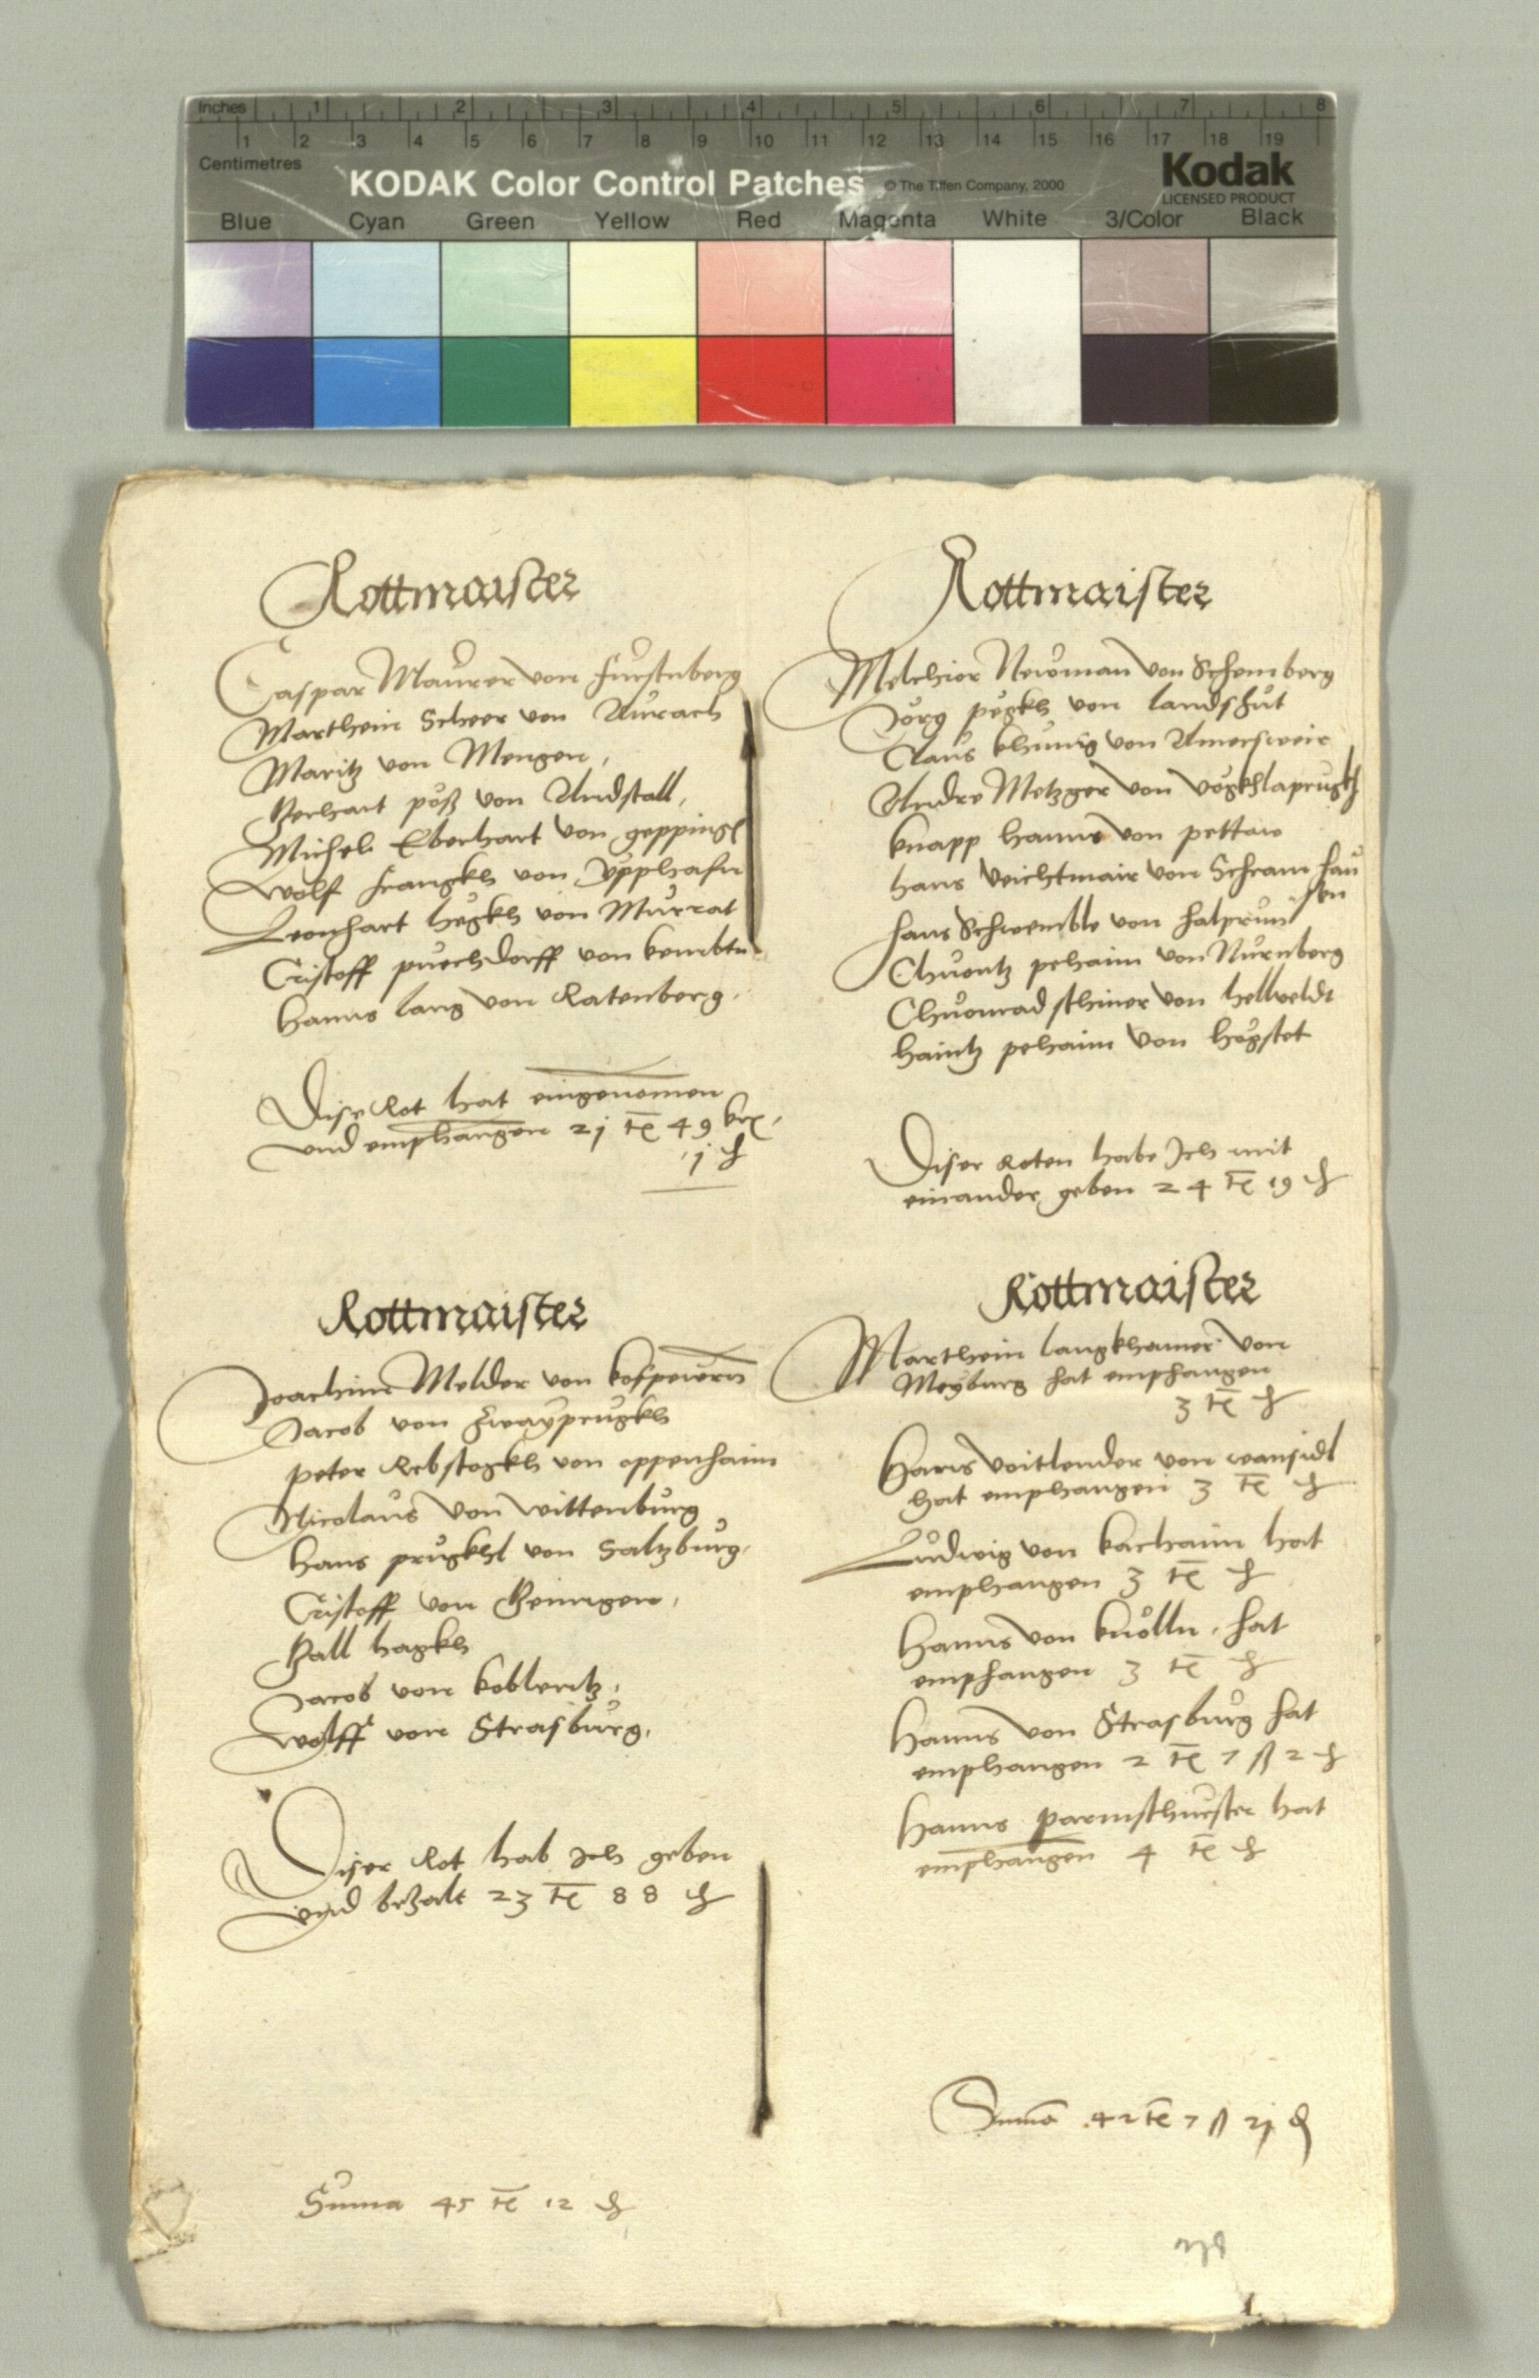 Inches 1 2 3 4 5 6 7 8
1 2 3 4 5 6 7 8 9 10 11 12 13 14 15 16 17 18 19
Centimetres
KODAK Color Control Patches © The Tiffen Company, 2000
Kodak
LICENSED PRODUCT
Blue Cyan Green Yellow Red Magenta White 3/Color Black
Rottmaister
Caspar Maurer von Furstnberg
Marthein Scheer von Aurach
Maritz von Mengen,
Gerhart poß von Andstall,
Michel Eberhart von geppinge
Wolf Frangkh von Ypphafn
Leonhart hugkh von Murrat
Cristoff puechdorff von kembtn
Hanns lang von Ratenberg.
Dise Rot hat eingenomen
und emphangen 21 fl 49 krz.
1 ₰
Rottmaister
Joachim Melder von
Jacob von Zwayprugkh
peter Rebstogkh von oppenhaim
Nicolaus von wittenburg
Hans prugkhl von Saltzburg.
Cristoff von Geningen,
Gall hagkh
Jacob von koblentz,
Wolff von Strasburg.
Diser Rot hab Ich geben
und bezalt 23 fl 88 ₰
Suma 45 fl 12 ₰
Rottmaister
Melchior Newman von Schemberg
Jorg pegkh von landshut
Claus khunig von Amersweir
Andre Metzger von Vogkhlaprugkh
knapp hanns von pettaw
hans Veichtmair von Schram hau
sen
Hans Schwemble von halprun
Chuontz pehaim von Nurnberg
Chuonrad sthiner von hellveldt
haintz pehaim von hogstet
Diser Roten habe Ich mit
einander geben 24 fl 19 ₰
Rottmaister
Marthein langkhamer von
Meyburg hat emphangen
3 fl ₰
Hans Voitlender von wansidl
hat emphangen 3 fl ₰
Ludwig von kachaim hat
emphangen 3 fl ₰
Hanns von knolln, hat
emphangen 3 fl ₰
Hanns von Strasburg hat
emphangen 2 fl 7 ß 2 ₰
Hanns parmsthurster hat
emphangen 4 fl ₰
Suma 42 fl 7 ß 21 ₰